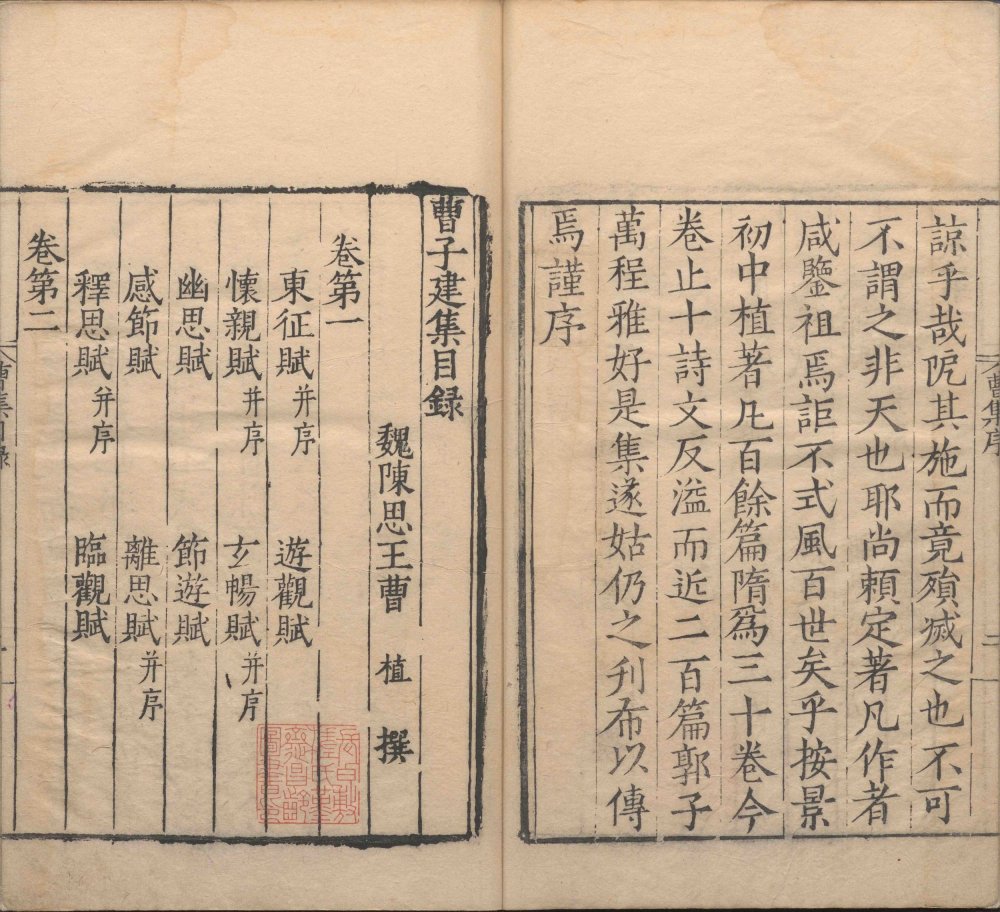 諒乎哉阨其施而竟殞滅之也不可
不謂之非天也耶尚頼定著凡作者
咸鑒祖焉詎不式風百世矣乎按景
初中植著凡百餘篇隋爲三十卷今
卷止十詩文反溢而近二百篇郭子
萬程雅好是集遂姑仍之刋布以傳
焉謹序
曹集序
二
曹子建集目録
魏陳思王曹 植 撰
卷第一
東征賦并序 遊觀賦
懷親賦并序 玄暢賦并序
幽思賦 節遊賦
感節賦 離思賦并序
釋思賦并序 臨觀賦
卷第二
曹集目録